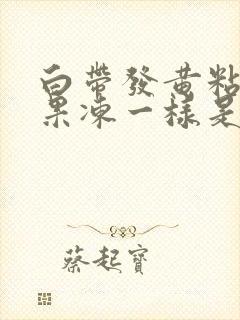 白帶發黃粘
果凍一樣是
蔡起寶